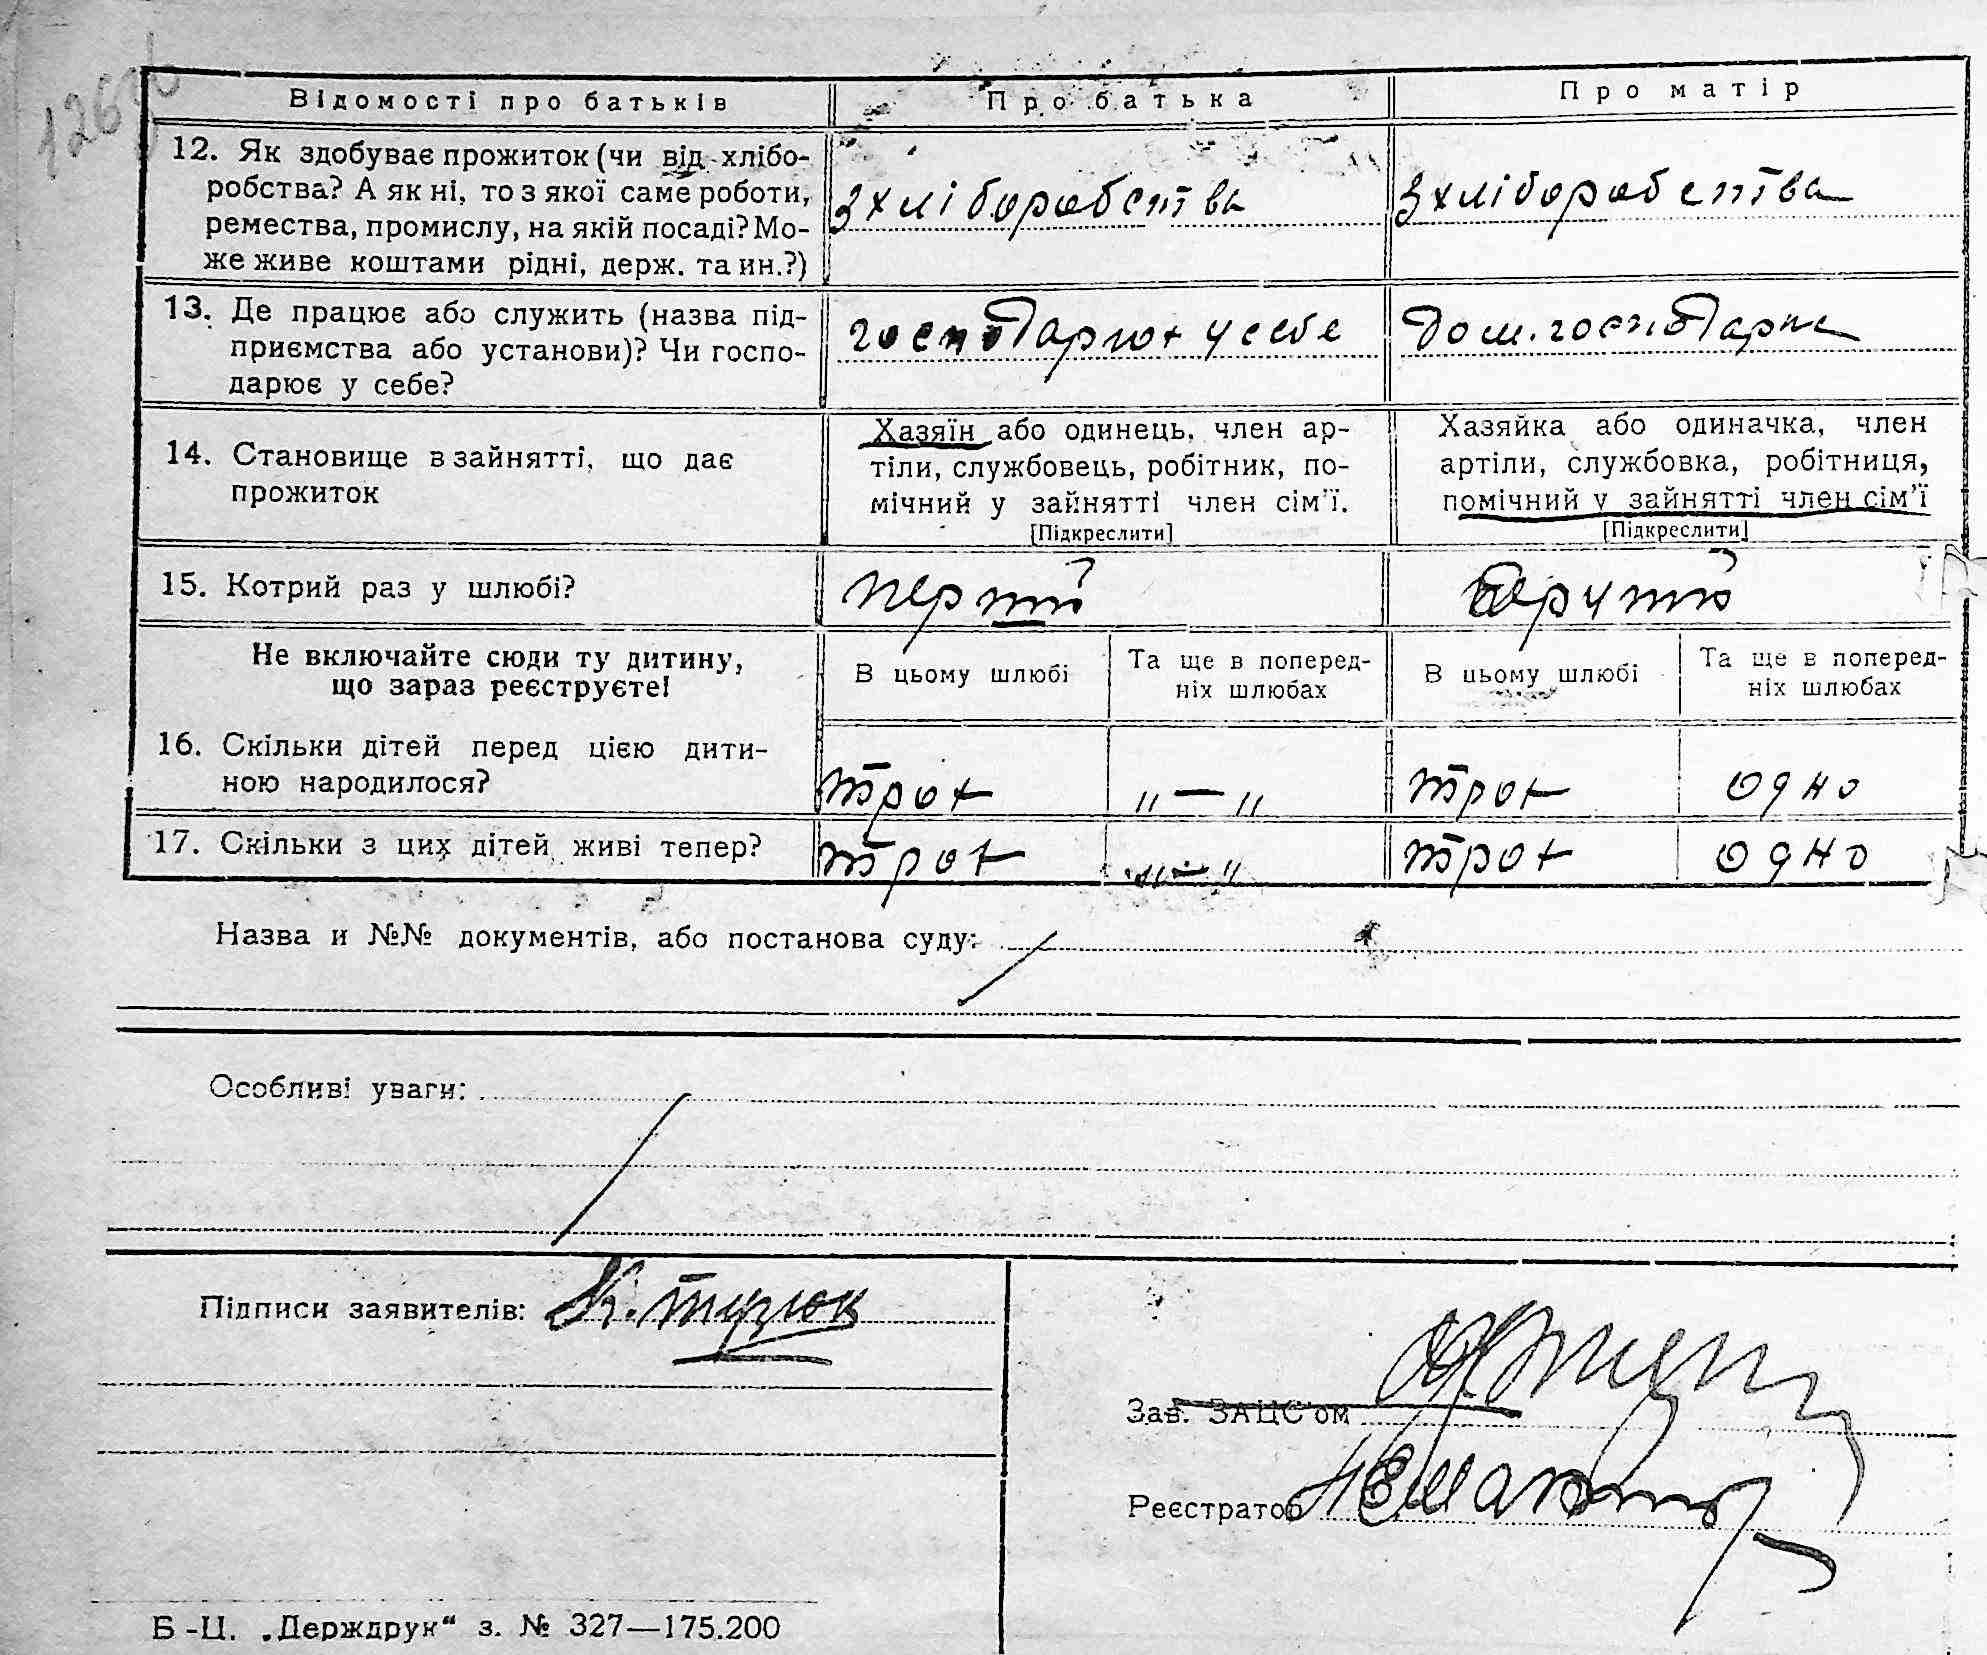 126
Відомості про батьків
Про батька
Про матір
12. Як здобуває прожиток (чи від хлібо-
робства? А як ні, то з якої саме роботи,
ремества, промислу, на якій посаді? Мо-
же живе коштами рідні, держ. та ин.?)
З хліборобства
З хліборобства
13. Де працює або служить (назва під-
приємства або установи)? Чи госпо-
дарює у себе?
господарює у себе
Дом. господарка
14. Становище в зайнятті, що дає
прожиток
Хазяїн або одинець, член ар-
тіли, службовець, робітник, по-
мічний у зайнятті член сім'ї.
[Підкреслити]
Хазяйка або одиначка, член
артіли, службовка, робітниця,
помічний у зайнятті член сім'ї
[Підкреслити]
15. Котрий раз у шлюбі?
перший
Не включайте сюди ту дитину,
що зараз реєструєте!
В цьому шлюбі
Та ще в поперед-
ніх шлюбах
В цьому шлюбі
Та ще в поперед-
ніх шлюбах
16. Скільки дітей перед цією дити-
ною народилося?
троє
" — "
троє
одно
17. Скільки з цих дітей живі тепер?
троє
" — "
троє
одно
Назва и №№ документів, або постанова суду:
Особливі уваги:
Підписи заявителів:
Зав. ЗАЦС'ом
Реєстратор
Б-Ц. „Держдрук“ з. № 327—175.200